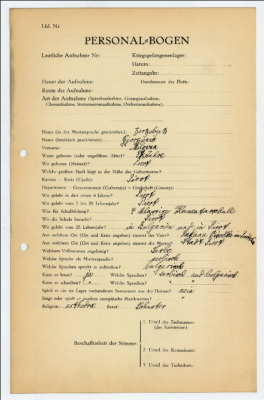 Lfd. Nr
PERSONAL-BOGEN
Lautliche Aufnahme Nr:
Kriegsgefangenenlager:
Datum:
Zeitangabe:
Dauer der Aufnahme:
Durchmesser der Platte:
Raum der Aufnahme:
Art der Aufnahme (Sprechaufnahme, Gesangsaufnahme, Choraufnahme, Instrumentenaufnahme, Orchesteraufnahme):
Name (in der Muttersprache geschrieben):
Name (lateinisch geschrieben):
Vorname:
Wann geboren (oder ungefähres Alter)?
Wo geboren (Heimat)? Pirot
Welche größere Stadt liegt in der Nähe des Geburtsortes?
Kanton – Kreis (Ujedz): Pirot
Departement – Gouvernement (Gubernija) – Grafschaft (County):
Wo gelebt in den ersten 6 Jahren? Pirot
Wo gelebt vom 7. bis 20. Lebensjahr? Pirot
Was für Schulbildung? 4
Wo die Schule besucht? Pirot
Wo gelebt vom 20. Lebensjahr? in Bulgarien und in Pirot
Aus welchem Ort (Ort und Kreis angeben) stammt der Vater?
Aus welchem Ort (Ort und Kreis angeben) stammt die Mutter? Stadt Pirot
Welchem Volksstamm angehörig? Serbe
Welche Sprache als Muttersprache? serbisch
Welche Sprachen spricht er außerdem? bulgarisch
Kann er lesen? ja Welche Sprachen? serbisch und bulgarisch
Kann er schreiben? ja Welche Sprachen?
Spielt er ein im Lager vorhandenes Instrument aus der Heimat? nein
Singt oder spielt er modern europäische Musikweisen?
Religion: orthodox Beruf:
Beschaffenheit der Stimme:
1. Urteil des Fachmannes (des Assistenten):
2. Urteil des Kommissars:
3. Urteil des Technikers: